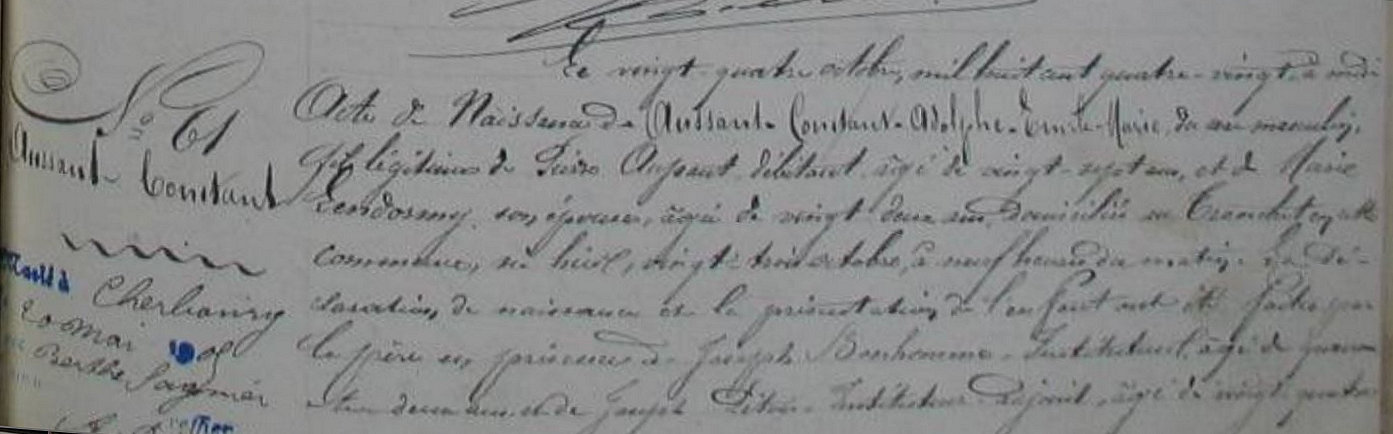 N° 61
Aussant Constant
Marié à Cherbourg
20 mai 1905
Berthe
Le vingt-quatre octobre, mil huit cent quatre-vingt, à midi
Acte de Naissance de Aussant Constant-Adolphe-Ernest-Marie, du sexe masculin,
fils légitime de Pierre Aussant, débitant, âgé de vingt-sept ans, et de Marie
son épouse, âgée de vingt-deux ans, domiciliés au en cette
commune, né hier, vingt-trois octobre, à neuf heures du matin. La dé-
claration de naissance et la présentation de l'enfant ont été faites par
le père en présence de Joseph Bonhomme, Instituteur, âgé de quaran-
te deux ans et de Joseph Instituteur adjoint, âgé de vingt-quatre